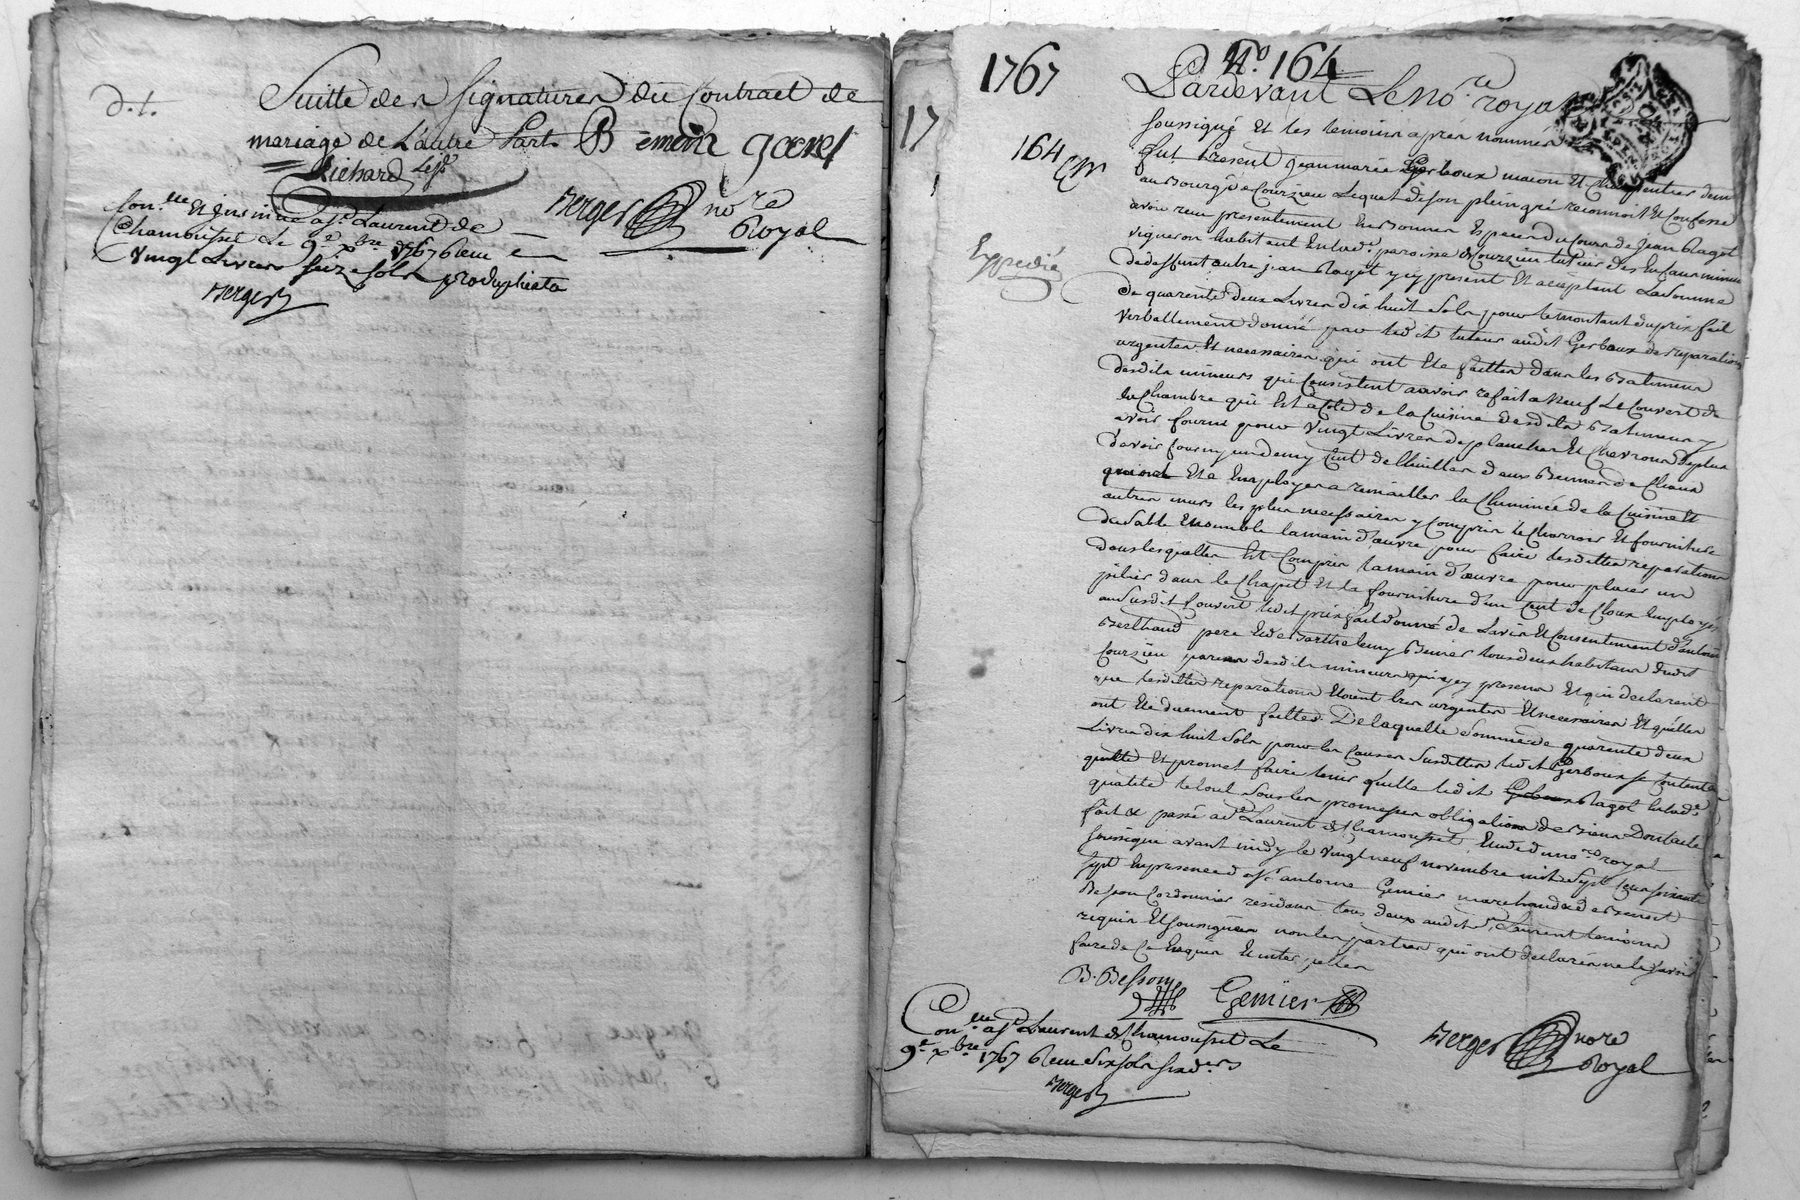 d. t.
Suitte des Signatures du Contract de
mariage de L'autre Part. B Bemon goenet
Richard Lesd.
Berger no.re
Royal
Con.lle et insinué a S.t Laurent de
Chamousset le 9.e xbre 1767 Receu
vingt Livres seize sols produplicata
Berger
17
1767
N.o 164
164
Expedié
Pardevant Le no.re royal
soussigné Et les temoins aprés nommés
fut Present jean marie Gerboux macon Et Charpentier dem.t
au Bourg de Courzieu Lequel de son plein gré reconnoit Et Confesse
avoir receu presentement En bonnes Especes du cours de jean Ragot
vigneron habitant En lad.e paroisse de Courzieu tuteur des Enfans mineurs
de deffunt autre jean Ragot y cy present Et acceptant La Somme
de quarente deux Livres dix huit Sols pour le montant du prix fait
verballement donné par led it tuteur audit Gerboux des reparations
urgentes Et necessaires qui ont Eté faittes dans les Batimens
desdits mineurs qui Consistent a avoir refait a Neuf Le Couvert de
la Chambre qui Est a Coté de la Cuisine desdits Batimens y
avoir fourni pour vingt Livres de planches Et Chevrons deplus
d'avoir fourny un demy Cent de thuilles deux Bennes de Chaux
qui ont Eté Employés a remailler la Cheminée de la Cuisine Et
autres murs les plus necessaires y Compris le Charrois Et fourniture
du Sable Ensemble la main d'œuvre pour faire lesdittes reparations
dans lesquelles Est Compris la main d'œuvre pour placer un
pilier dans le Chapit Et la fourniture d'un Cent de Cloux Employés
au Susdit Couvert led it prix fait donné de Lavis Et Consentement d'antoine
Berthaud pere Et de Barthelemy Benier tous deux habitans dudit
Courzieu parens desdits mineurs y cy presens Et qui declarent
que lesdittes reparations Etoient tres urgentes Et necessaires Et qu'elles
ont Eté duement faittes De laquelle Somme de quarente deux
Livres dix huit Sols pour les Causes Susdittes led it Gerboux se Contente
quitte Et promet faire tenir quitte led it Ragot En lad.e
qualité le tout Sous les promesses obligations de Biens Dont acte
fait & passé a S.t Laurent de Chamousset Etude du no.re royal
soussigné avant midy le vingt neuf novembre mil Sept Cens soixante
Sept En presence de S.r antoine Gemier marchand & de Benoit
Besson Cordonnier residans tous deux audit S.t Laurent temoins
requis Et soussignés non les parties qui ont declarés ne le Savoir
faire de Ce Enquis Et interpellés
B. Besson
Gemier
Berger no.re
Royal
Con.lle a S.t Laurent de Chamousset Le
9.e xbre 1767 Receu Six sols six d.ers
Berger